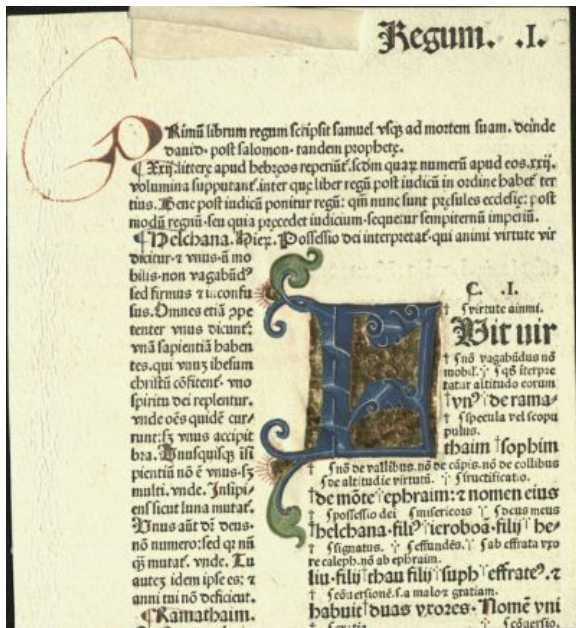 Regum. .I.
PRimū librum regum scripsit samuel vsq̃ ad mortem suam. deinde
dauid. post salomon. tandem prophete.
¶ Xxij. littere apud hebreos reperiūt̃. scdm quarꝝ numerū apud eos .xxij.
volumina supputant̃. inter que liber regū post iudicū in ordine habet̃ ter
tius. Bene post iudicū ponitur regū: qm̄ nunc sunt presules ecclesie: post
modū regnū. seu quia precedet iudicium. sequetur sempiternū imperiū.
¶ Helchana. Hier. Possessio dei interpretat̃. qui animi virtute vir
dicitur. ⁊ vnus. ū mo
bilis. non vagabūdꝰ
sed firmus ⁊ incōfu
sus. Omnes etiā ppe
tenter vnus dicunt̃:
vnā sapientiā haben
tes. qui vnuꝫ ihesum
christū cōfitent̃. vno
spiritu dei replentur.
vnde oēs quidē cur/
runt: sꝫ vnus accipit
bra. Vnusquisqꝫ isti
pientiū nō ē vnus. sꝫ
multi. vnde. Insipi/
ens sicut luna mutat̃.
Vnus aūt dr̄ deus.
nō numero: sed qꝛ nū
q̄ꝫ mutat̃. vnde. Tu
auteꝫ idem ipse es: ⁊
anni tui nō deficient.
¶ Ramathaim.
C. .I.
† ſ virtute animi.
FVit vir
† ſ nō vagabūdus nō
mobil'. ⁘ ſ q̄ s̄ iterpre
tatur altitudo eorum
† vnꝰ † de rama-
† ſ specula vel scopu
pulus.
thaim † sophim
† ſ nō de vallibus. nō de cāpis. nō de collibus
ſ de altitudīe virtutū. ⁘ ſ fructificatio.
† de mōte † ephraim: ⁊ nomen eius
† ſ possessio dei ſ misericors † ſ deus meus
† helchana. filiꝰ † ieroboā. filij † he-
† ſ signatus. ⁘ ſ effundēs. ⁘ ſ ab effrata vxo
re caleph. nō ab ephraim.
liu. filij † thau filij † suph † effrateꝰ. ⁊
† ſ cōuersionē. s. a malo ⁊ gratiam.
habuit † duas vxores. Nomē vni